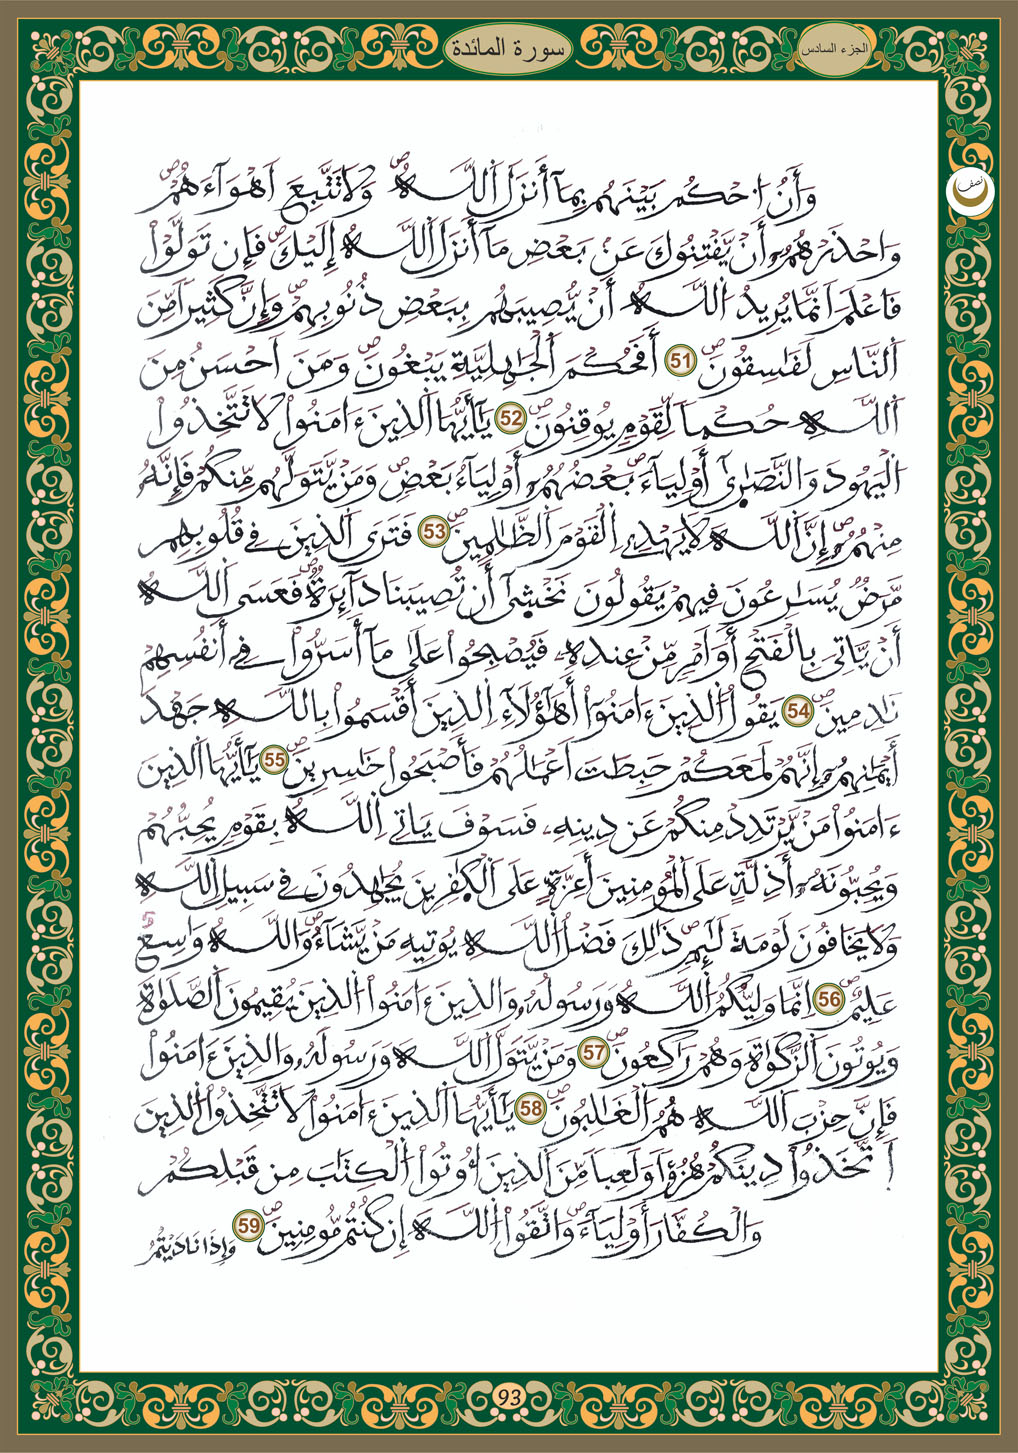 الجزء السادس
سورة المائدة
نصف
وَأَنُ احْكُم بَيْنَهُم بِمَآ أَنزَلَ اَللَّهُ ۖ وَلَا تَتَّبِعَ اَهْوَآءَهُمْ ۖ
وَاحْذَرْهُمُۥٓ أَنْ يَّفْتِنُوكَ عَنۢ بَعْضِ مَآ أَنزَلَ اَللَّهُ إِلَيْكَ ۖ فَإِن تَوَلَّوْاْ
فَاعْلَمَ اَنَّمَا يُرِيدُ اُللَّهُ أَنْ يُّصِيبَهُم بِبَعْضِ ذُنُوبِهِمْ ۖ وَإِنَّ كَثِيرًا مِّنَ
اَلنَّاسِ لَفَٰسِقُونَ ۖ 51 أَفَحُكْمَ اَلْجَٰهِلِيَّةِ يَبْغُونَ ۖ وَمَنَ اَحْسَنُ مِنَ
اَللَّهِ حُكْمًا لِّقَوْمٍ يُوقِنُونَ ۖ 52 يَٰٓأَيُّهَا اَلذِينَ ءَامَنُواْ لَا تَتَّخِذُواْ
اُلْيَهُودَ وَالنَّصَٰرِىٰٓ أَوْلِيَآءَ ۖ بَعْضُهُمُۥٓ أَوْلِيَآءُ بَعْضٍ ۖ وَمَنْ يَّتَوَلَّهُم مِّنكُمْ فَإِنَّهُۥ
مِنْهُمُۥٓ ۖ إِنَّ اَللَّهَ لَا يَهْدِے اِلْقَوْمَ اَلظَّٰلِمِينَ ۖ 53 فَتَرَى اَلذِينَ فِے قُلُوبِهِم
مَّرَضٌ يُسَٰرِعُونَ فِيهِمْ يَقُولُونَ نَخْشَىٰٓ أَن تُصِيبَنَا دَآئِرَةٌ ۖ فَعَسَى اَللَّهُ
أَنْ يَّاتِيَ بِالْفَتْحِ أَوَ اَمْرٍ مِّنْ عِندِهِۦ فَيُصْبِحُواْ عَلَىٰ مَآ أَسَرُّواْ فِےٓ أَنفُسِهِمْ
نَٰدِمِينَ ۖ 54 يَقُولُ اُلذِينَ ءَامَنُوٓاْ أَهَٰٓؤُلَآءِ اِلذِينَ أَقْسَمُواْ بِاللَّهِ جَهْدَ
أَيْمَٰنِهِمُۥٓ إِنَّهُمْ لَمَعَكُمْ حَبِطَتَ اَعْمَٰلُهُمْ فَأَصْبَحُواْ خَٰسِرِينَ ۖ 55 يَٰٓأَيُّهَا اَلذِينَ
ءَامَنُواْ مَنْ يَّرْتَدِدْ مِنكُمْ عَن دِينِهِۦ فَسَوْفَ يَاتِے اِللَّهُ بِقَوْمٍ يُحِبُّهُمْ
وَيُحِبُّونَهُۥٓ أَذِلَّةٍ عَلَى اَلْمُومِنِينَ أَعِزَّةٍ عَلَى اَلْكٰ۪فِرِينَ يُجَٰهِدُونَ فِے سَبِيلِ اِللَّهِ
وَلَا يَخَافُونَ لَوْمَةَ لَآئِمٍ ۖ ذَٰلِكَ فَضْلُ اُللَّهِ يُوتِيهِ مَنْ يَّشَآءُ ۖ وَاللَّهُ وَٰسِعٌ
عَلِيمٌ ۖ 56 اِنَّمَا وَلِيُّكُمُ اُللَّهُ وَرَسُولُهُۥ وَالذِينَ ءَامَنُواْ اُلذِينَ يُقِيمُونَ اَلصَّلَوٰةَ
وَيُوتُونَ اَلزَّكَوٰةَ وَهُمْ رَٰكِعُونَ ۖ 57 وَمَنْ يَّتَوَلَّ اَللَّهَ وَرَسُولَهُۥ وَالذِينَ ءَامَنُواْ
فَإِنَّ حِزْبَ اَللَّهِ هُمُ اُلْغَٰلِبُونَ ۖ 58 يَٰٓأَيُّهَا اَلذِينَ ءَامَنُواْ لَا تَتَّخِذُواْ اُلذِينَ
اَتَّخَذُواْ دِينَكُمْ هُزُؤًا وَلَعِبًا مِّنَ اَلذِينَ أُوتُواْ اُلْكِتَٰبَ مِن قَبْلِكُمْ
وَالْكُفَّارَ أَوْلِيَآءَ ۖ وَاتَّقُواْ اُللَّهَ إِن كُنتُم مُّومِنِينَ ۖ 59 وَإِذَا نَادَيْتُمُۥٓ
93